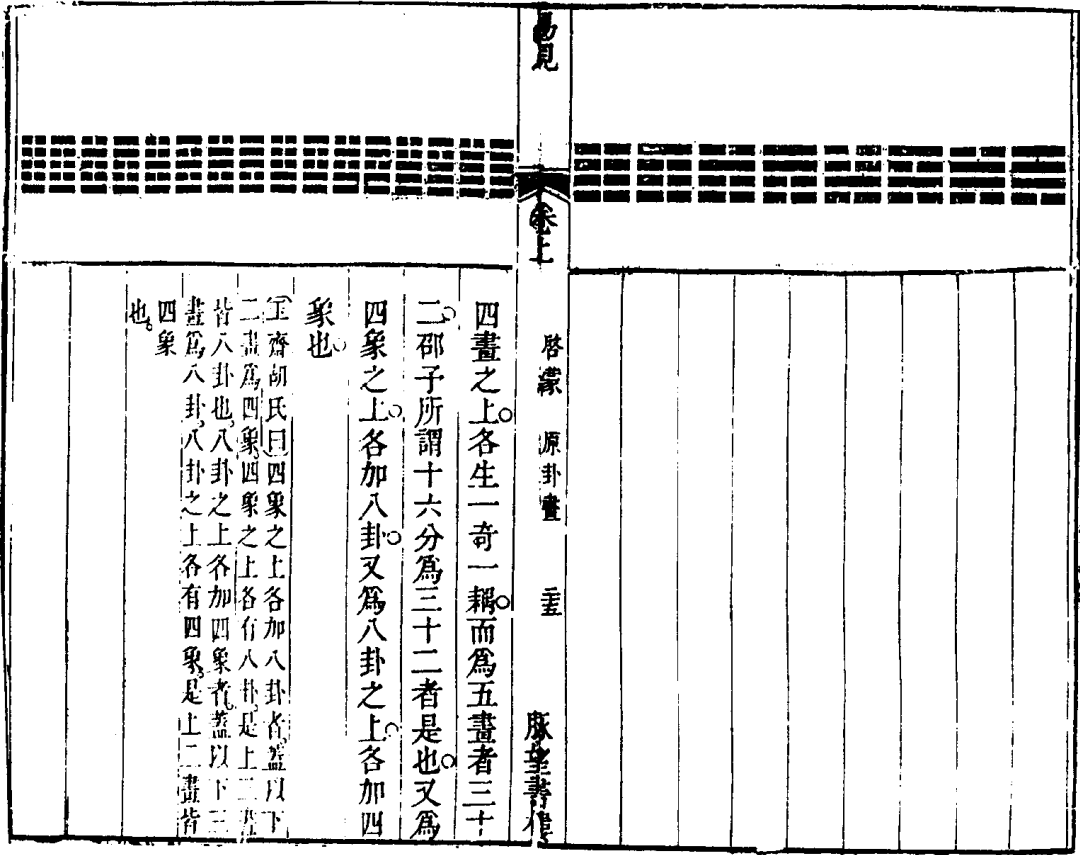 易見
卷上
啓蒙 原卦畫
脈望書樓
四畫之上各生一奇一耦而爲五畫者三十
二邵子所謂十六分爲三十二者是也又爲
四象之上各加八卦又爲八卦之上各加四
象也
玉齋胡氏曰四象之上各加八卦者蓋以下
二畫爲四象四象之上各有八卦是上三畫
皆八卦也八卦之上各加四象者蓋以下三
畫爲八卦八卦之上各有四象是上二畫皆
四象
也